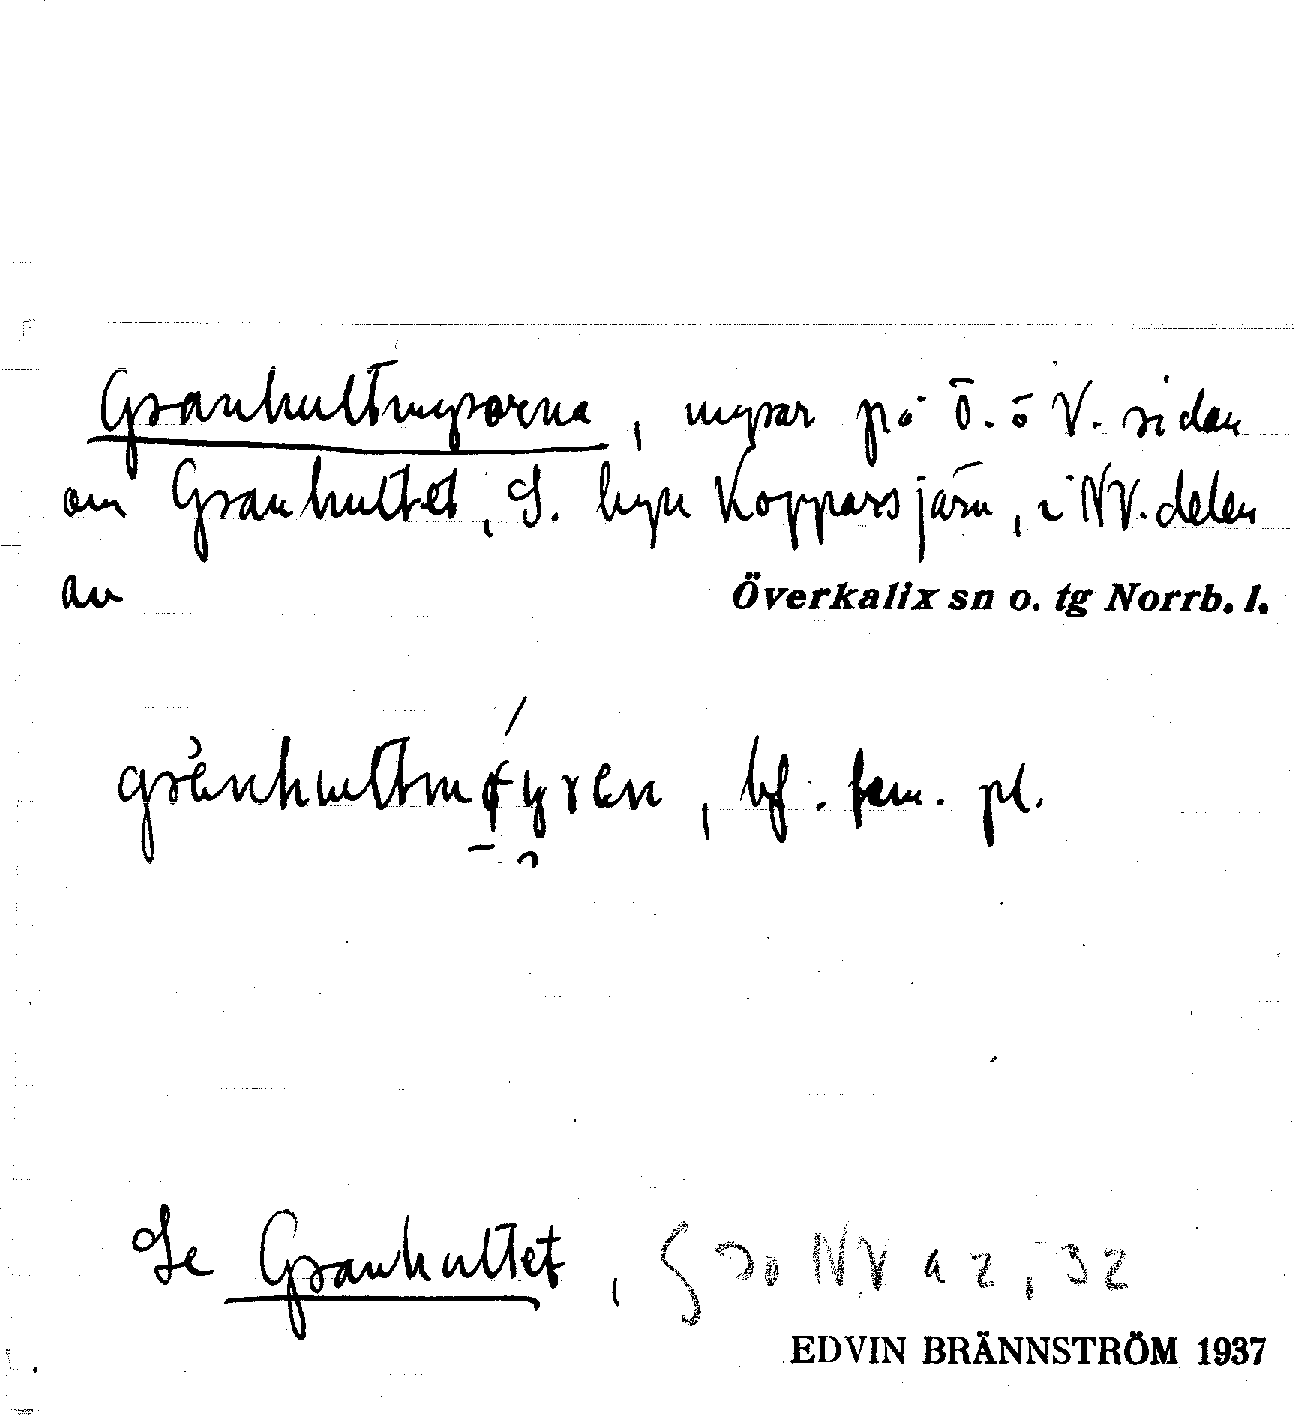 Granhultmyrorna, myrar på Ö. o V. sidan
om Granhultet, S. byn Kopparsjärn, i NV. delen
av Överkalix sn o. tg Norrb. l.
, bf. fem. pl.
Se Granhultet, 30 NV a 2, 32
EDVIN BRÄNNSTRÖM 1937